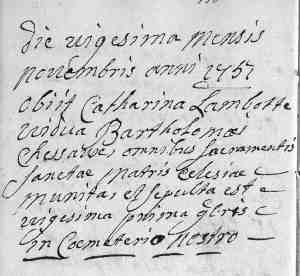 die vigesima mensis
novembris anni 1757
obiit Catharina Lambotte
vidua Bartholomæi
Chessawe, omnibus sacramentis
sanctae matris ecclesiae
munita, et sepulta est
vigesima prima
in Coemeterio nostro